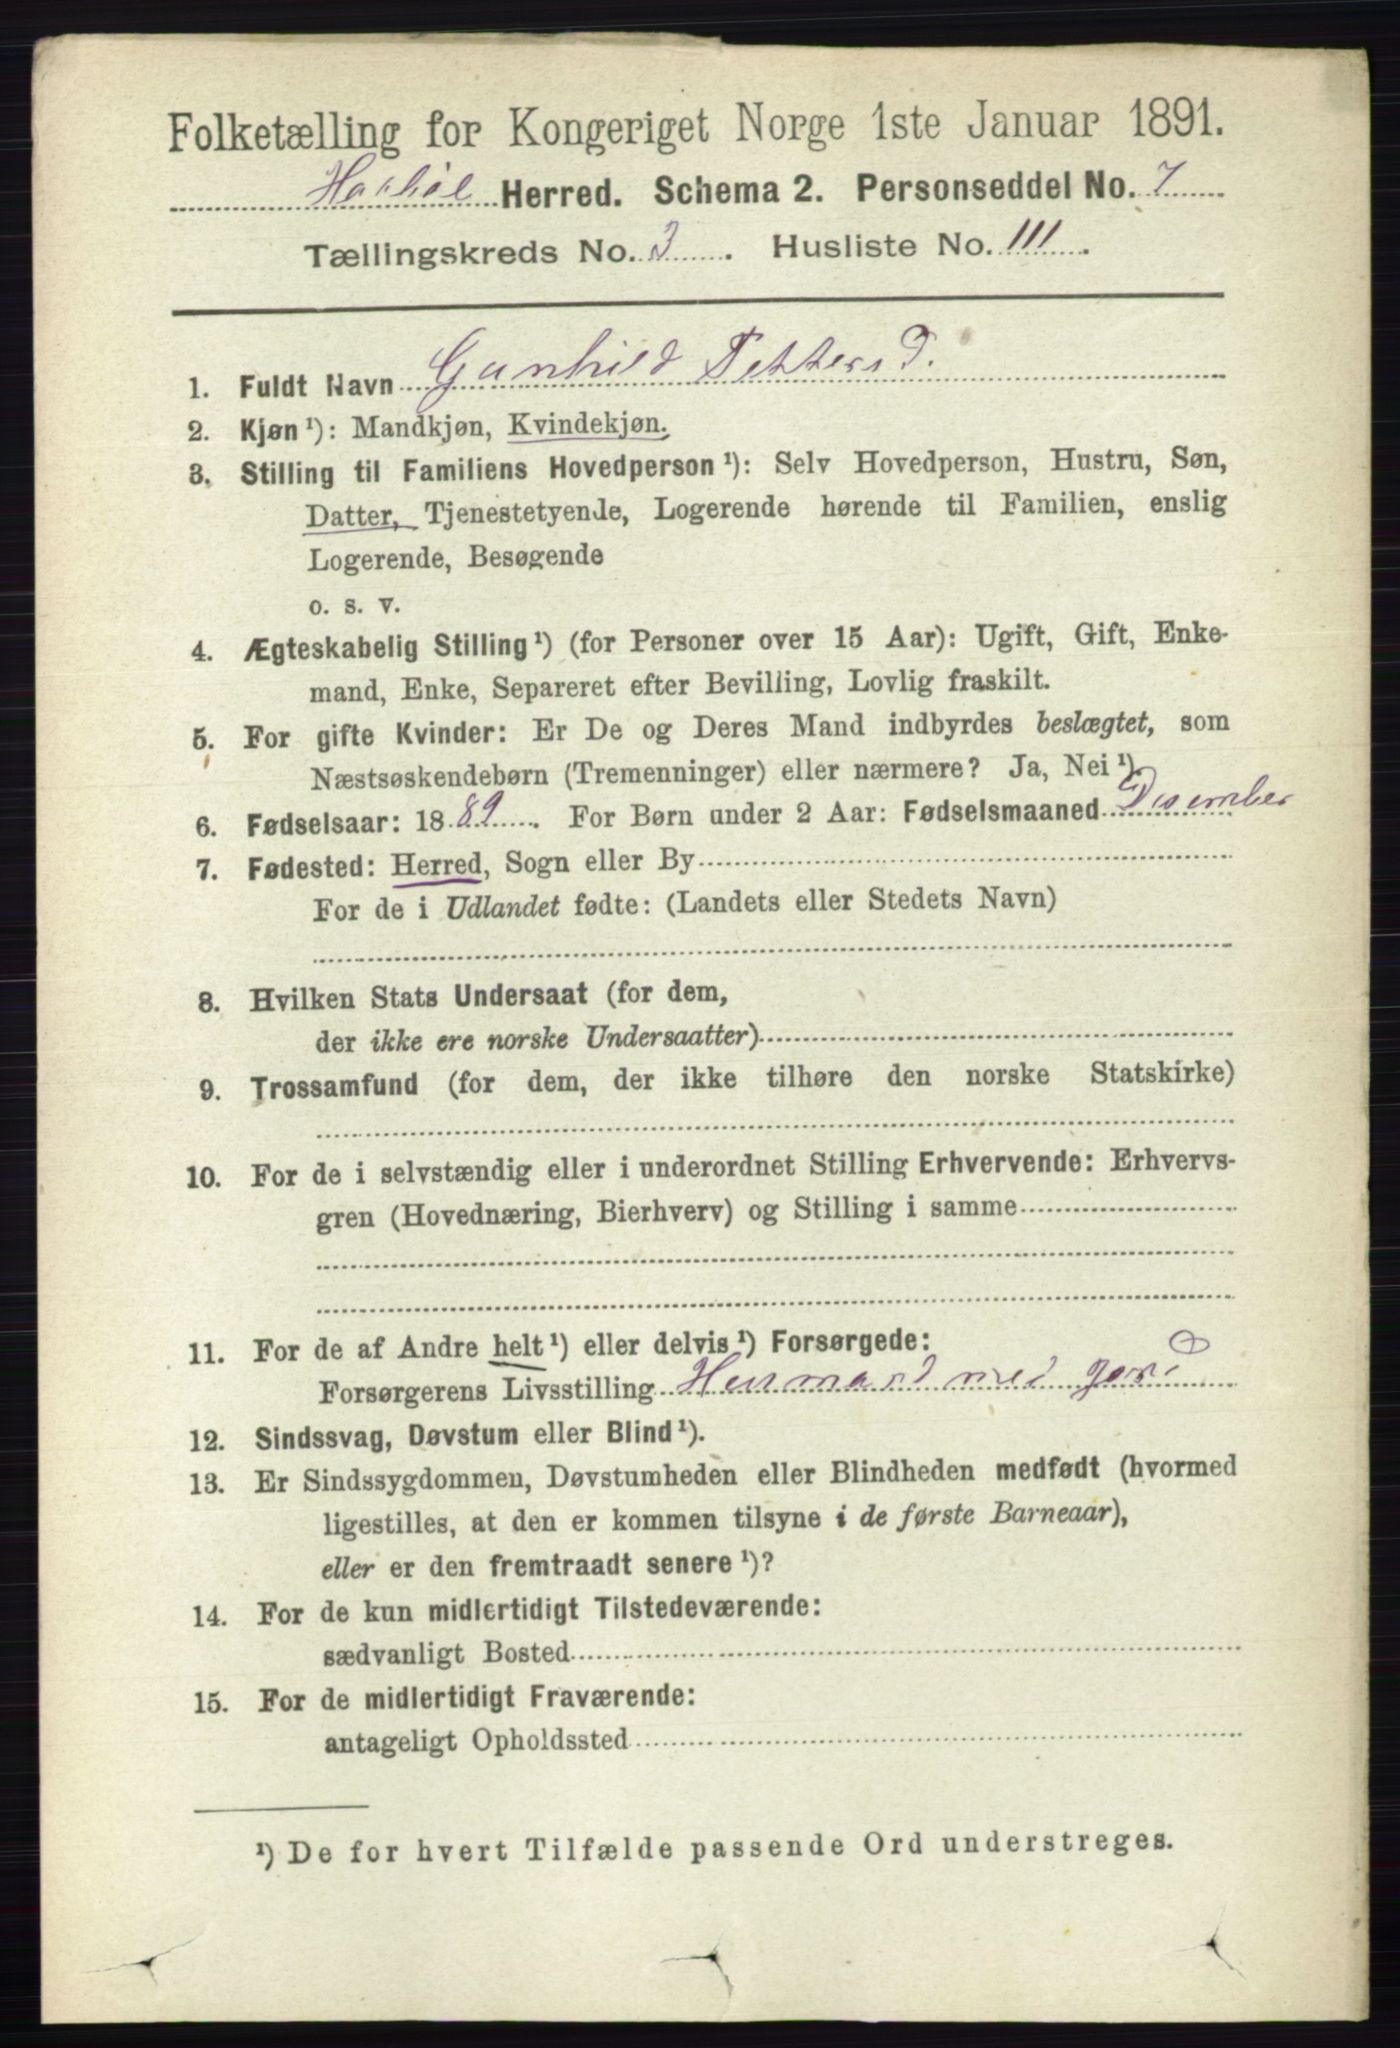 Folketælling for Kongeriget Norge 1ste Januar 1891.
Herred. Schema 2. Personseddel No. 7
Tællingskreds No. 3. Husliste No. 111.
1. Fuldt Navn Gunhild Petters D.
2. Kjøn ¹): Mandkjøn, Kvindekjøn.
3. Stilling til Familiens Hovedperson ¹): Selv Hovedperson, Hustru, Søn,
Datter, Tjenestetyende, Logerende hørende til Familien, enslig
Logerende, Besøgende
o. s. v.
4. Ægteskabelig Stilling ¹) (for Personer over 15 Aar): Ugift, Gift, Enke-
mand, Enke, Separeret efter Bevilling, Lovlig fraskilt.
5. For gifte Kvinder: Er De og Deres Mand indbyrdes beslægtet, som
Næstsøskendebørn (Tremenninger) eller nærmere? Ja, Nei ¹).
6. Fødselsaar: 1889. For Børn under 2 Aar: Fødselsmaaned Desember
7. Fødested: Herred, Sogn eller By
For de i Udlandet fødte: (Landets eller Stedets Navn)
8. Hvilken Stats Undersaat (for dem,
der ikke ere norske Undersaatter)
9. Trossamfund (for dem, der ikke tilhøre den norske Statskirke)
10. For de i selvstændig eller i underordnet Stilling Erhvervende: Erhvervs-
gren (Hovednæring, Bierhverv) og Stilling i samme
11. For de af Andre helt ¹) eller delvis ¹) Forsørgede:
Forsørgerens Livsstilling Husmand med jord
12. Sindssvag, Døvstum eller Blind ¹).
13. Er Sindssygdommen, Døvstumheden eller Blindheden medfødt (hvormed
ligestilles, at den er kommen tilsyne i de første Barneaar),
eller er den fremtraadt senere ¹)?
14. For de kun midlertidigt Tilstedeværende:
sædvanligt Bosted
15. For de midlertidigt Fraværende:
antageligt Opholdssted
¹) De for hvert Tilfælde passende Ord understreges.